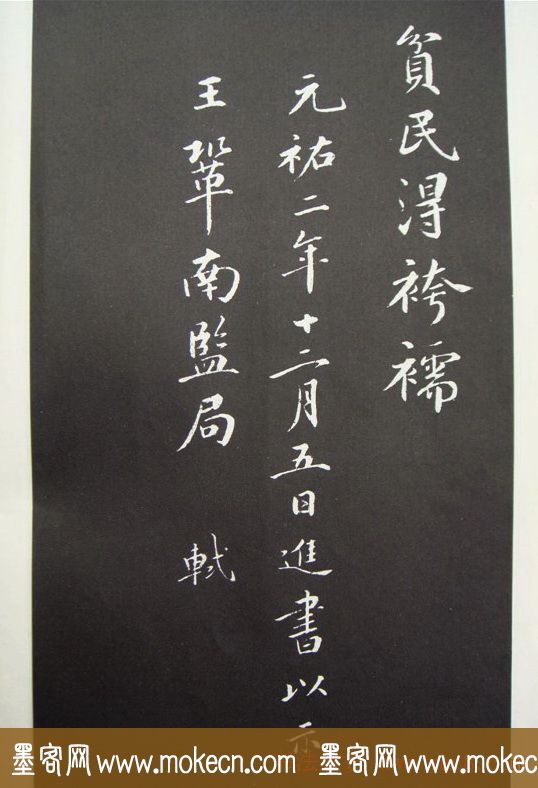 貧民得袴襦
元祐二年十二月五日進書以示
王鞏南監局 軾
墨客网 www.mokecn.com 墨客网 www.mokec
法